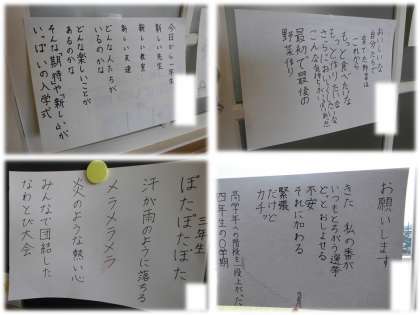 今日から一年生
新しい先生
新しい教室
新しい友達
どんな人たちが
いるのかな
どんな楽しいことが
あるのかな
そんな「期待」や「新しい」が
いっぱいの入学式
おいしいな
自分たちで
育てた野菜は
これから
もっと食べたいな
もっと作りたいな
さらにおいしく
こんな気持ち
最初で最後の
野菜作り
三年生
ぽたぽたぽた
汗が雨のように落ちる
メラメラメラ
炎のような熱い心
みんなで団結した
なわとび大会
お願いします
きた 私の番が
いつもとちがう選挙
どっとおしよせる
不安
それに加わる
緊張
だけど
カチッ
高学年への階段を一段上がった
四年生の〇学期